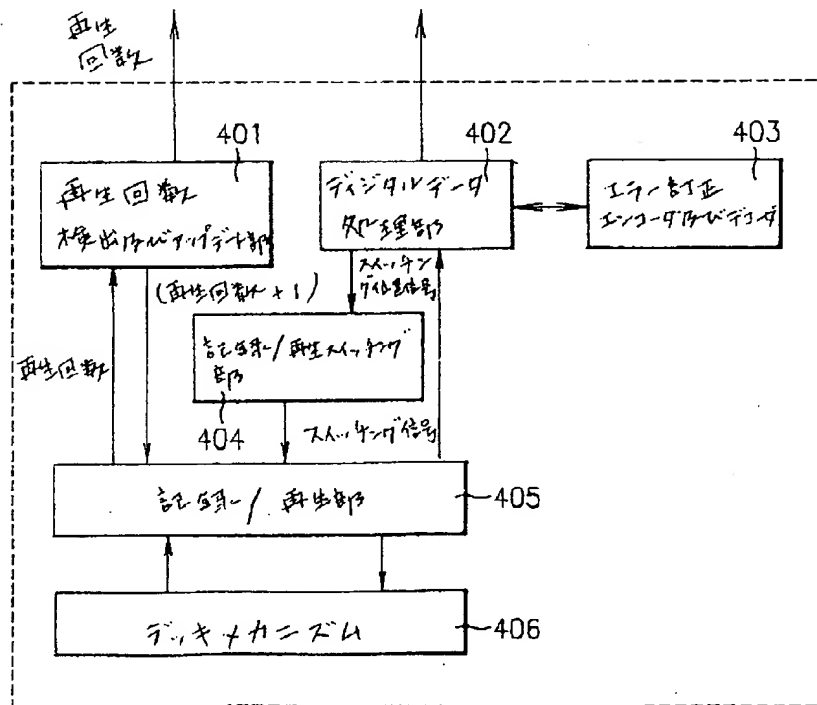 再生
回数
401
402
403
再生回数
検出及びアップデート部
ディジタルデータ
処理部
エラー訂正
エンコーダ及びデコーダ
(再生回数+1)
スイッチン
グ位置信号
再生回数
記録/再生スイッチング
部
404
スイッチング信号
記録/再生部
405
デッキメカニズム
406